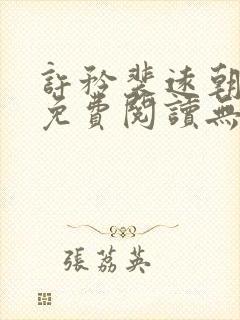 許矜裴速朝
免費閱讀無
張荔英